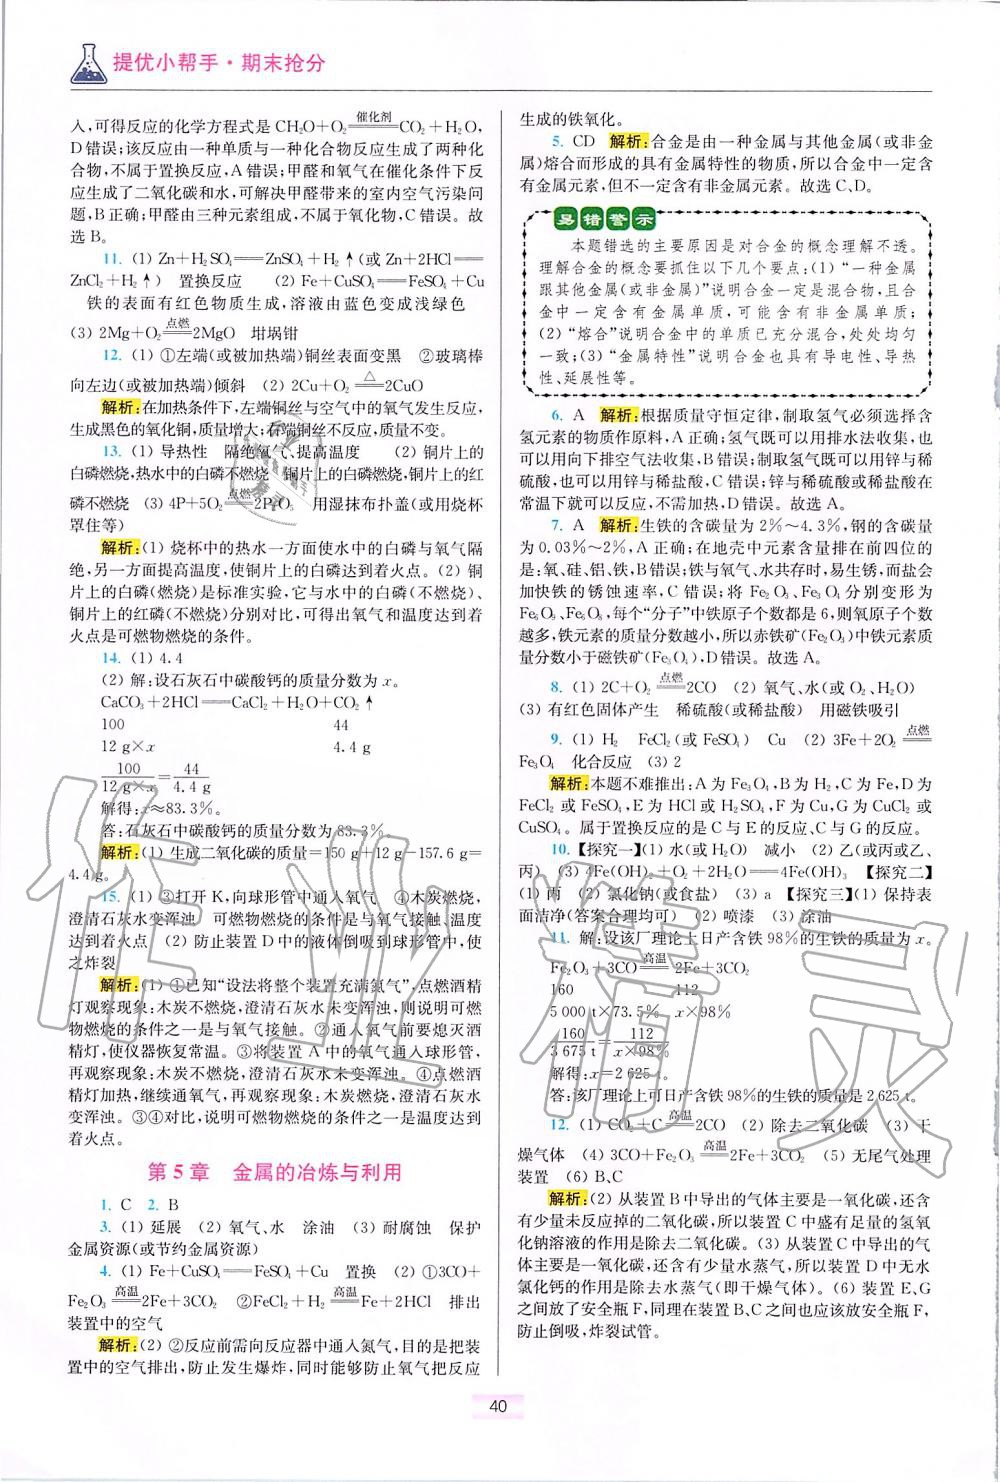 提优小帮手·期末抢分
入,可得反应的化学方程式是 CH₂O+O₂ =催化剂= CO₂+H₂O,
D错误;该反应由一种单质与一种化合物反应生成了两种化
合物,不属于置换反应,A错误;甲醛和氧气在催化条件下反
应生成了二氧化碳和水,可解决甲醛带来的室内空气污染问
题,B正确;甲醛由三种元素组成,不属于氧化物,C错误。故
选B。
11. (1) Zn+H₂SO₄══ZnSO₄+H₂↑(或 Zn+2HCl══
ZnCl₂+H₂↑) 置换反应 (2) Fe+CuSO₄══FeSO₄+Cu
铁的表面有红色物质生成,溶液由蓝色变成浅绿色
(3) 2Mg+O₂ =点燃= 2MgO 坩埚钳
12. (1) ①左端(或被加热端)铜丝表面变黑 ②玻璃棒
向左边(或被加热端)倾斜 (2) 2Cu+O₂ =△= 2CuO
解析:在加热条件下,左端铜丝与空气中的氧气发生反应,
生成黑色的氧化铜,质量增大;右端铜丝不反应,质量不变。
13. (1) 导热性 隔绝氧气、提高温度 (2) 铜片上的
白磷燃烧,热水中的白磷不燃烧 铜片上的白磷燃烧,铜片上的红
磷不燃烧 (3) 4P+5O₂ =点燃= 2P₂O₅ 用湿抹布扑盖(或用烧杯
罩住等)
解析:(1) 烧杯中的热水一方面使水中的白磷与氧气隔
绝,另一方面提高温度,使铜片上的白磷达到着火点。(2) 铜
片上的白磷(燃烧)是标准实验,它与水中的白磷(不燃烧)、
铜片上的红磷(不燃烧)分别对比,可得出氧气和温度达到着
火点是可燃物燃烧的条件。
14. (1) 4.4
(2) 解:设石灰石中碳酸钙的质量分数为 x。
CaCO₃+2HCl══CaCl₂+H₂O+CO₂↑
100 44
12 g×x 4.4 g
100/(12 g×x)=44/4.4 g
解得:x≈83.3%。
答:石灰石中碳酸钙的质量分数为83.3%
解析:(1) 生成二氧化碳的质量=150 g+12 g-157.6 g=
4.4 g。
15. (1) ③打开K,向球形管中通入氧气 ④木炭燃烧,
澄清石灰水变浑浊 可燃物燃烧的条件是与氧气接触、温度
达到着火点 (2) 防止装置D中的液体倒吸到球形管中,使
之炸裂
解析:(1) ①已知“设法将整个装置充满氮气”,点燃酒精
灯观察现象:木炭不燃烧,澄清石灰水未变浑浊,则说明可燃
物燃烧的条件之一是与氧气接触。②通入氧气前要熄灭酒
精灯,使仪器恢复常温。③将装置A中的氧气通入球形管,
再观察现象:木炭不燃烧,澄清石灰水未变浑浊。④点燃酒
精灯加热,继续通氧气,再观察现象:木炭燃烧,澄清石灰水
变浑浊。③④对比,说明可燃物燃烧的条件之一是温度达到
着火点。
第5章 金属的冶炼与利用
1. C 2. B
3. (1) 延展 (2) 氧气、水 涂油 (3) 耐腐蚀 保护
金属资源(或节约金属资源)
4. (1) Fe+CuSO₄══FeSO₄+Cu 置换 (2) ①3CO+
Fe₂O₃ =高温= 2Fe+3CO₂ ②FeCl₂+H₂ =高温= Fe+2HCl 排出
装置中的空气
解析:(2) ②反应前需向反应器中通入氮气,目的是把装
置中的空气排出,防止发生爆炸,同时能够防止氧气把反应
生成的铁氧化。
5. CD 解析:合金是由一种金属与其他金属(或非金
属)熔合而形成的具有金属特性的物质,所以合金中一定含
有金属元素,但不一定含有非金属元素。故选C、D。
易错警示
本题错选的主要原因是对合金的概念理解不透。
理解合金的概念要抓住以下几个要点:(1)“一种金属
跟其他金属(或非金属)”说明合金一定是混合物,且合
金中一定含有金属单质,可能含有非金属单质;
(2)“熔合”说明合金中的单质已充分混合,处处均匀
一致;(3)“金属特性”说明合金也具有导电性、导热
性、延展性等。
6. A 解析:根据质量守恒定律,制取氢气必须选择含
氢元素的物质作原料,A正确;氢气既可以用排水法收集,也
可以用向下排空气法收集,B错误;制取氢气既可以用锌与稀
硫酸,也可以用锌与稀盐酸,C错误;锌与稀硫酸或稀盐酸在
常温下就可以反应,不需加热,D错误。故选A。
7. A 解析:生铁的含碳量为2%～4.3%,钢的含碳量
为0.03%～2%,A正确;在地壳中元素含量排在前四位的
是:氧、硅、铝、铁,B错误;铁与氧气、水共存时,易生锈,而盐会
加快铁的锈蚀速率,C错误;将 Fe₂O₃、Fe₃O₄ 分别变形为
Fe₆O₉、Fe₆O₈,每个“分子”中铁原子个数都是6,则氧原子个数
越多,铁元素的质量分数越小,所以赤铁矿(Fe₂O₃)中铁元素质
量分数小于磁铁矿(Fe₃O₄),D错误。故选A。
8. (1) 2C+O₂ =点燃= 2CO (2) 氧气、水(或O₂、H₂O)
(3) 有红色固体产生 稀硫酸(或稀盐酸) 用磁铁吸引
9. (1) H₂ FeCl₂(或FeSO₄) Cu (2) 3Fe+2O₂ =点燃=
Fe₃O₄ 化合反应 (3) 2
解析:本题不难推出:A为Fe₃O₄,B为H₂,C为Fe,D为
FeCl₂ 或 FeSO₄,E为 HCl或 H₂SO₄,F为 Cu,G为 CuCl₂ 或
CuSO₄。属于置换反应的是C与E的反应、C与G的反应。
10. 【探究一】(1) 水(或H₂O) 减小 (2) 乙(或丙或乙、
丙) (3) 4Fe(OH)₂+O₂+2H₂O══4Fe(OH)₃ 【探究二】
(1) 雨 (2) 氯化钠(或食盐) (3) a 【探究三】(1) 保持表
面洁净(答案合理均可) (2) 喷漆 (3) 涂油
11. 解:设该厂理论上日产含铁98%的生铁的质量为 x。
Fe₂O₃+3CO =高温= 2Fe+3CO₂
160 112
5 000 t×73.5% x×98%
160/3 675 t=112/(x×98%)
解得:x=2 625 t。
答:该厂理论上可日产含铁98%的生铁的质量是2 625 t。
12. (1) CO₂+C =高温= 2CO (2) 除去二氧化碳 (3) 干
燥气体 (4) 3CO+Fe₂O₃ =高温= 2Fe+3CO₂ (5) 无尾气处理
装置 (6) B、C
解析:(2) 从装置B中导出的气体主要是一氧化碳,还含
有少量未反应掉的二氧化碳,所以装置C中盛有足量的氢氧
化钠溶液的作用是除去二氧化碳。(3) 从装置C中导出的气
体主要是一氧化碳,还含有少量水蒸气,所以装置D中无水
氯化钙的作用是除去水蒸气(即干燥气体)。(6) 装置E、G
之间放了安全瓶F,同理在装置B、C之间也应该放安全瓶F,
防止倒吸,炸裂试管。
40
作业精灵